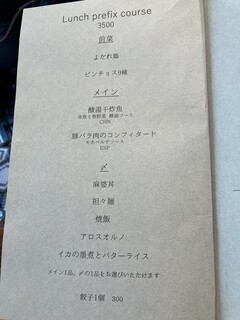 Lunch prefix course
3500
前菜
よだれ鶏
ピンチョス9種
メイン
酸湯干炸魚
CHN
豚バラ肉のコンフィタード
モホベルデソース
ESP
〆
麻婆丼
担々麺
焼飯
アロスオルノ
イカの墨煮とバターライス
メイン1品、〆の1品をお選びいただけます
餃子1個 300